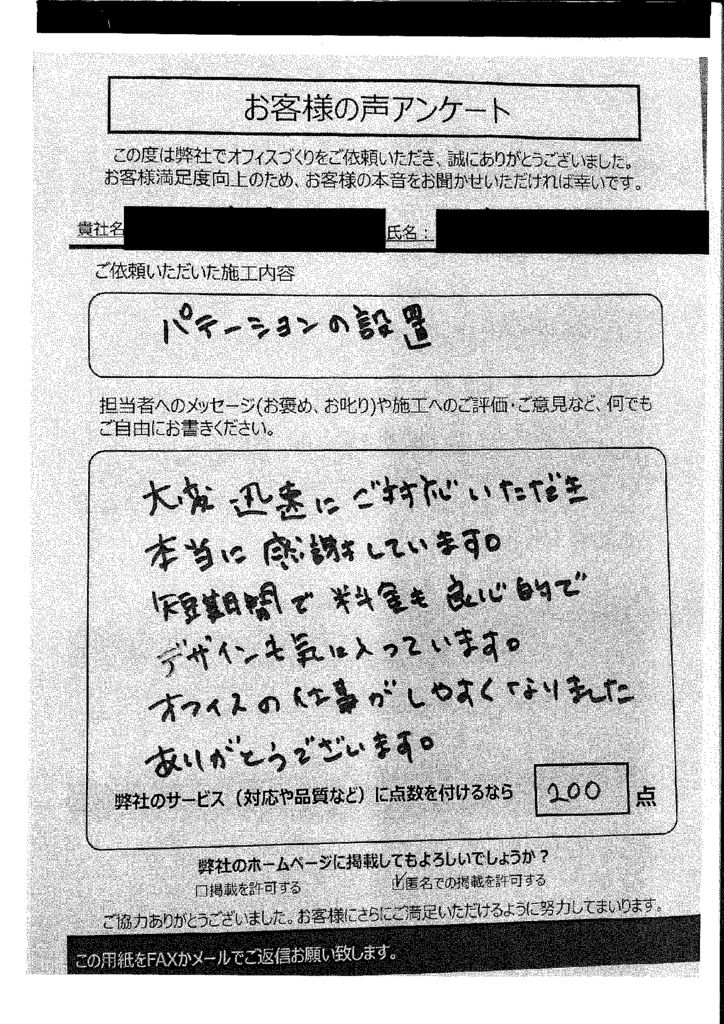 お客様の声アンケート
この度は弊社でオフィスづくりをご依頼いただき、誠にありがとうございました。
お客様満足度向上のため、お客様の本音をお聞かせいただければ幸いです。
貴社名 氏名：
ご依頼いただいた施工内容
パテーションの設置
担当者へのメッセージ(お褒め、お叱り)や施工へのご評価・ご意見など、何でも
ご自由にお書きください。
大変 迅速に ご対応いただき
本当に 感謝しています。
短期間で 料金も 良心的で
デザインも気に入っています。
オフィスの仕事がしやすくなりました
ありがとうございます。
弊社のサービス（対応や品質など）に点数を付けるなら 200 点
弊社のホームページに掲載してもよろしいでしょうか？
□掲載を許可する ☑匿名での掲載を許可する
ご協力ありがとうございました。お客様にさらにご満足いただけるように努力してまいります。
この用紙をFAXかメールでご返信お願い致します。